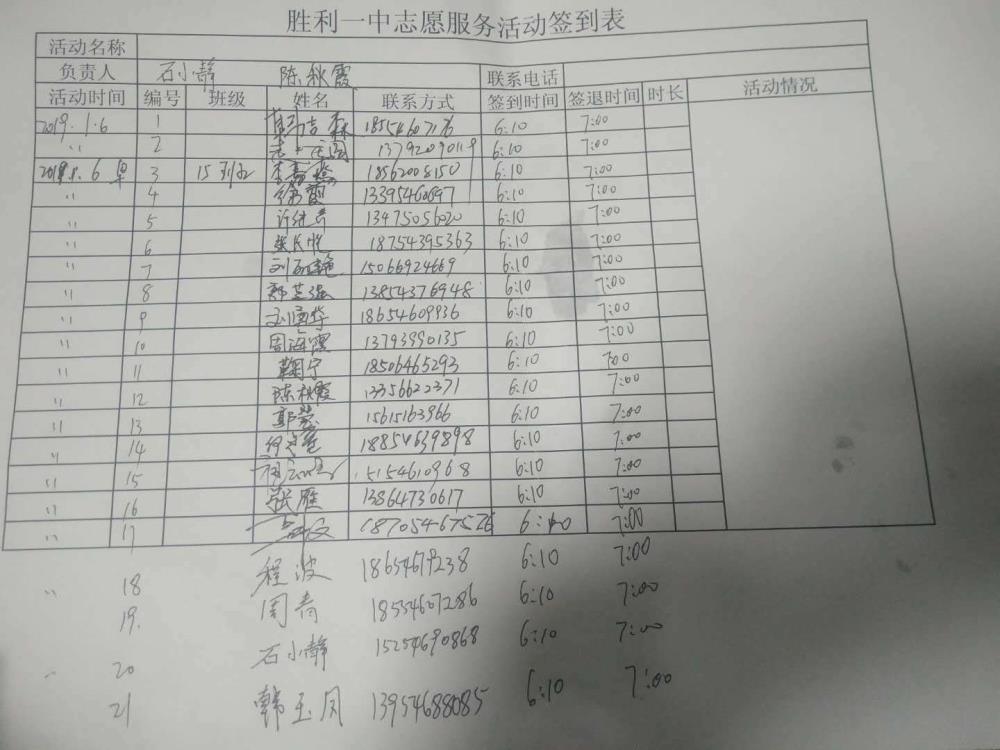 胜利一中志愿服务活动签到表
活动名称
负责人 石小静 陈秋霞 联系电话
活动时间 编号 班级 姓名 联系方式 签到时间 签退时间 时长 活动情况
2019.1.6 1 18554607176 6:10 7:00
〃 2 13792090119 6:10 7:00
6 早 3 15 18562008150 6:10 7:00
〃 4 徐霞 13395460697 6:10 7:00
〃 5 13475056020 6:10 7:00
〃 6 张长悦 18754395363 6:10 7:00
〃 7 15066924669 6:10 7:00
〃 8 13854376948 6:10 7:00
〃 9 18654609936 6:10 7:00
〃 10 周海霞 13793990135 6:10 7:00
〃 11 鞠宁 18506465293 6:10 7:00
〃 12 陈秋霞 13356622371 6:10 7:00
〃 13 郭蕊 15615163966 6:10 7:00
〃 14 18854639898 6:10 7:00
〃 15 15154610968 6:10 7:00
〃 16 张雁 13864730617 6:10 7:00
〃 17 18705467526 6:10 7:00
〃 18 程波 18654679238 6:10 7:00
19. 周青 18554607286 6:10 7:00
〃 20 石小静 15254690868 6:10 7:00
21 韩玉凤 13954688085 6:10 7:00